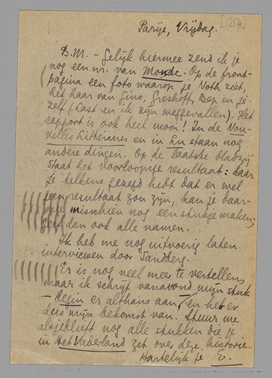 Parijs, Vrijdag.
D.M. – Gelijk hiermee zend ik je
nog een nr. van Monde. Op de front-
pagina een foto waarop je Noth ziet,
het haar van Gino, Greshoff, Bep en je-
zelf (Last en ik zijn weggevallen). Het
rapport is ook heel mooi! In de Nou-
velles Littéraires en in staan nog
andere dingen. Op de laatste bladzij
staat het voorloopige resultaat: daar
je telkens gezegd hebt dat er wel
een resultaat zou zijn, kan je daar-
mee misschien nog een stukje maken;
geef dan ook alle namen.
Ik heb me nog uitvoerig laten
interviewen door Sandberg.
Er is nog veel meer te vertellen,
maar ik schrijf vanavond mijn stuk
– begin er althans aan – en heb er
dus mijn bekomst van. Stuur me
alsjeblieft nog alle stukken die je
in Het Vaderland zet over deze historie.
Hartelijk je E.